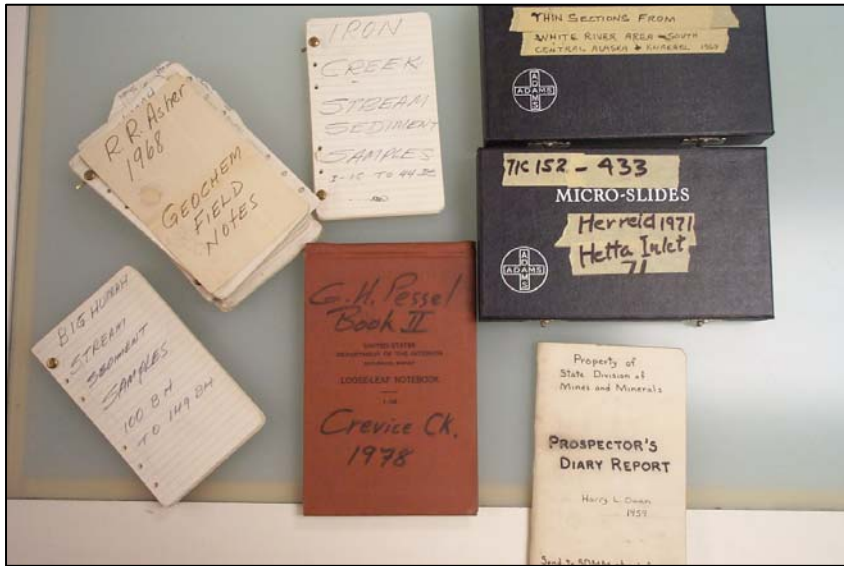 IRON
CREEK
STREAM
SEDIMENT
SAMPLES
R.R. Asher
1968
GEOCHEM
FIELD
NOTES
THIN SECTIONS FROM
WHITE RIVER AREA SOUTH
CENTRAL ALASKA
ADAMS
ADAMS
TIC 152 - 433
MICRO-SLIDES
Herreid 1971
Hetta Inlet
71
ADAMS
ADAMS
BIG HURRAH
STREAM
SEDIMENT
SAMPLES
100 BH
TO 149 BH
G.H. Pessel
Book II
UNITED STATES
DEPARTMENT OF THE INTERIOR
GEOLOGICAL SURVEY
LOOSE-LEAF NOTEBOOK
Crevice Ck.
1978
Property of
State Division of
Mines and Minerals
PROSPECTOR'S
DIARY REPORT
Harry L.
1959
Send to